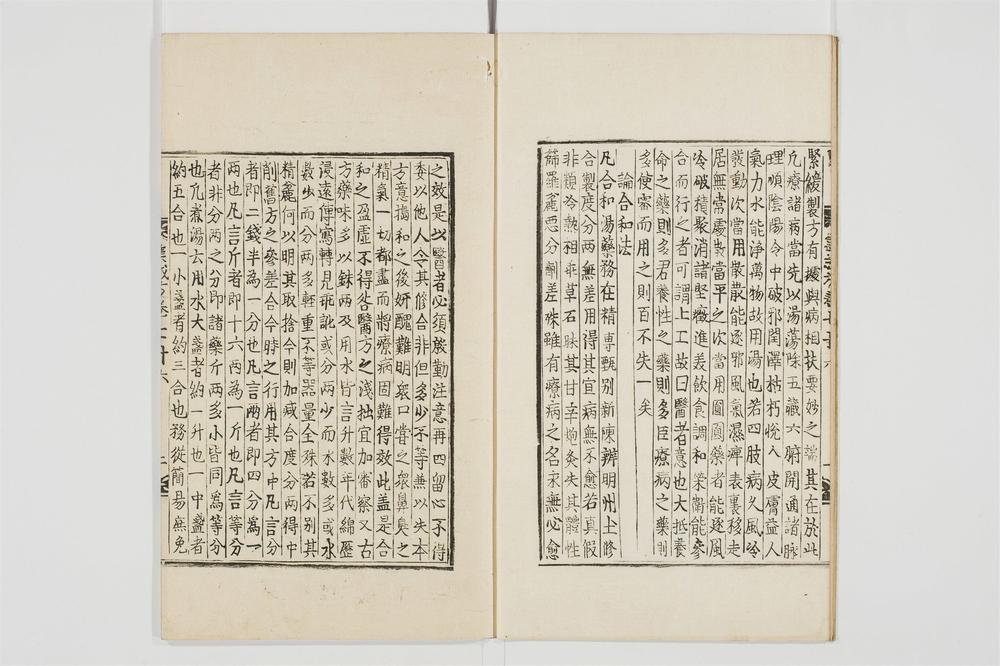 緊緩製方有據與病相扶要妙之端其在於此
凡療諸病當先以湯蕩滌五臟六腑開通諸脉
理順陰陽令中破邪閏澤枯朽悅人皮膚益人
氣力水能淨萬物故用湯也若四肢病久風冷
發動次當用散散能逐邪風氣濕痺表裏移走
居無常處散當平之次當用圓圓藥者能逐風
冷破積聚消諸堅癥進美飲食調和榮衛能參
合而行之者可謂上工故曰醫者意也大抵養
命之藥則多君養性之藥則多臣療病之藥則
多使審而用之則百不失一矣
論合和法
凡合和湯藥務在精專甄別新陳辨明州土修
合製度分兩無差用得其宜病無不愈若真假
非類冷熱相乖草石昧其甘辛炮灸失其體性
篩羅麄惡分劑差殊雖有療病之名永無必愈
之效是以醫者必須殷勤注意再四留心不得
委以他人令其修合非但多少不等兼以失本
方意擣和之後妍醜難明衆口嘗之衆鼻臭之
精氣一切都盡而將療病固難得效此盖是合
和之盈虛不得咎醫方之淺拙宜加審察又古
方藥味多以銖兩及用水皆言升數年代綿歷
浸遠傳寫轉見乖訛或分兩少而水數多或水
數少而分兩多輕重不等器量全殊若不別其
精麄何以明其取捨今則加減合度分兩得中
削舊方之參差合今時之行用其方中凡言分
者即二錢半為一分也凡言兩者即四分為一
兩也凡言斤者即十六兩為一斤也凡言等分
者非分兩之分即諸藥斤兩多小皆同為等分
也凡煮湯云用水大盞者約一升也一中盞者
約五合也一小盞者約三合也務從簡易庶免